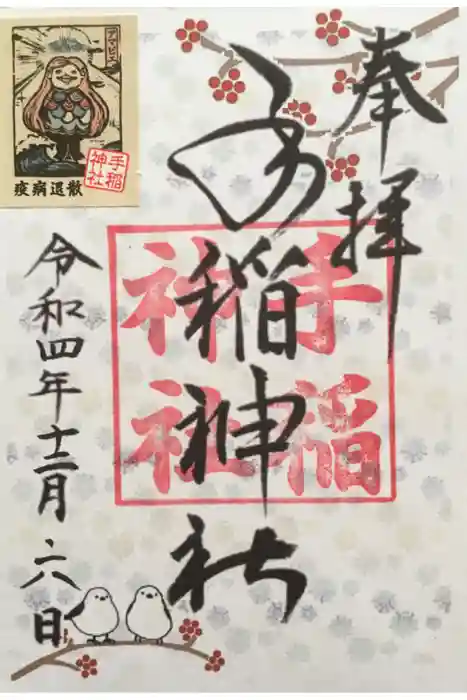 奉拝
手稲神社
手稲
神社
令和四年十二月六日
アマビエ
手稲
神社
疫病退散